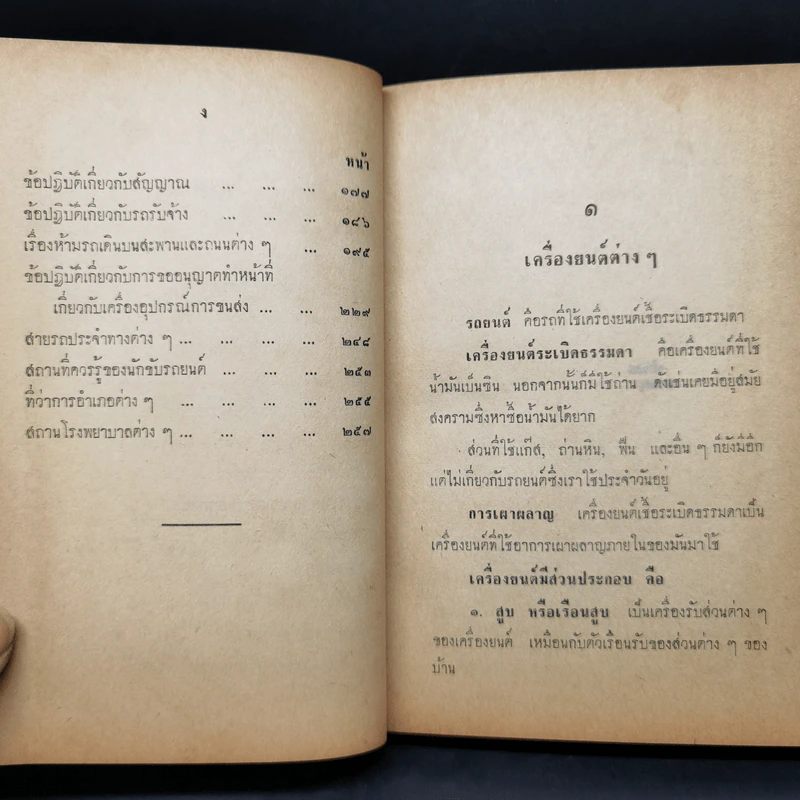 ง
หน้า
ข้อปฏิบัติเกี่ยวกับสัญญาณ ... ... ... ๑๗๗
ข้อปฏิบัติเกี่ยวกับรถรับจ้าง ... ... ... ๑๘๖
เรื่องห้ามรถเดินบนสะพานและถนนต่าง ๆ ... ๑๙๕
ข้อปฏิบัติเกี่ยวกับการขออนุญาตทำหน้าที่
เกี่ยวกับเครื่องอุปกรณ์การขนส่ง ... ... ๒๒๙
สายรถประจำทางต่าง ๆ ... ... ... ... ๒๔๘
สถานที่ควรรู้ของนักขับรถยนต์ ... ... ... ๒๕๓
ที่ว่าการอำเภอต่าง ๆ ... ... ... ๒๕๕
สถานโรงพยาบาลต่าง ๆ ... ... ... ... ๒๕๗
๑
เครื่องยนต์ต่าง ๆ
รถยนต์ คือรถที่ใช้เครื่องยนต์เชื้อระเบิดธรรมดา
เครื่องยนต์ระเบิดธรรมดา คือเครื่องยนต์ที่ใช้
น้ำมันเบ็นซิน นอกจากนั้นก็มีใช้ถ่าน ดังเช่นเคยมีอยู่สมัย
สงครามซึ่งหาซื้อน้ำมันได้ยาก
ส่วนที่ใช้แก๊ส, ถ่านหิน, ฟืน และอื่น ๆ ก็ยังมีอีก
แต่ไม่เกี่ยวกับรถยนต์ซึ่งเราใช้ประจำวันอยู่
การเผาผลาญ เครื่องยนต์เชื้อระเบิดธรรมดาเป็น
เครื่องยนต์ที่ใช้อาการเผาผลาญภายในของมันมาใช้
เครื่องยนต์มีส่วนประกอบ คือ
๑. สูบ หรือเรือนสูบ เป็นเครื่องรับส่วนต่าง ๆ
ของเครื่องยนต์ เหมือนกับตัวเรือนรับของส่วนต่าง ๆ ของ
บ้าน